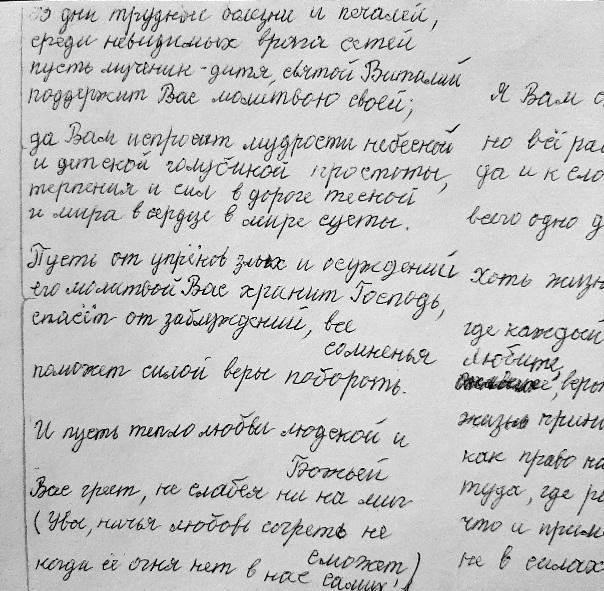 В дни трудной болезни и печалей,
среди невидимых врага сетей
пусть мученик-дитя, святой Виталий
поддержит Вас молитвою своей;
да Вам испросит мудрости небесной
и детской голубиной простоты,
терпения и сил в дороге тесной
и мира в сердце в мире суеты.
Пусть от упрёков злых и осуждений
его молитвой Вас хранит Господь,
спасёт от заблуждений, все
сомненья
поможет силой веры побороть.
И пусть тепло любви людской и
Божьей
Вас греет, не слабея ни на миг
(Увы, ничья любовь согреть не
сможет
когда её огня нет в нас самих!)
Я Вам
но всё
да и к
всего одно
Хоть
где каждый
любите,
жизнь
как право
туда, где
что и
не в силах